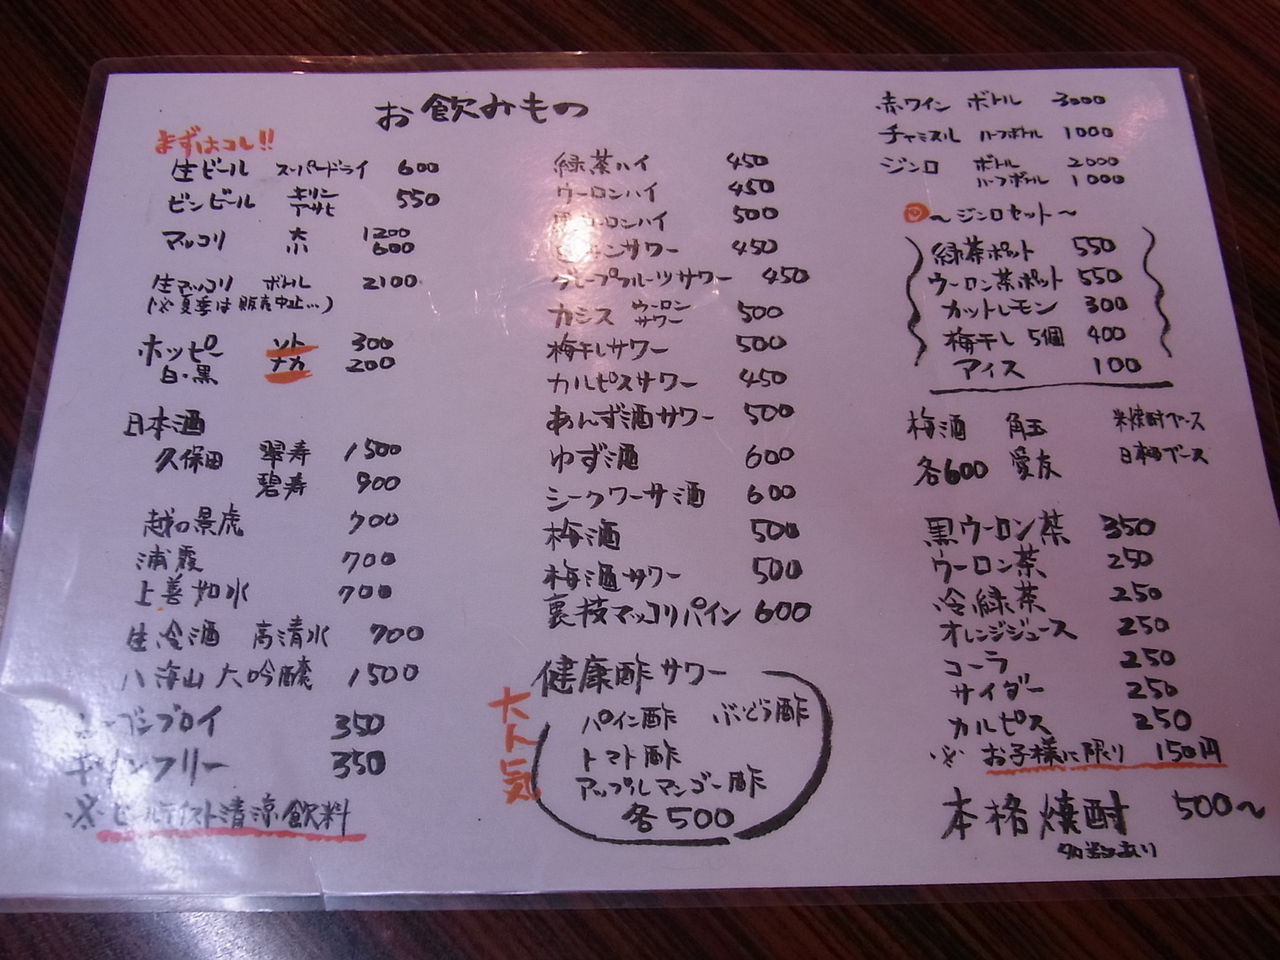 お飲みもの
まずはコレ!!
生ビール スーパードライ 600
ビンビール キリン アサヒ 550
マッコリ 大 1200
小 600
生マッコリ ボトル 2100
(※夏季は販売中止…)
ホッピー ソト 300
白・黒 ナカ 200
日本酒
久保田 翠寿 1500
碧寿 900
越の景虎 700
浦霞 700
上善如水 700
生冷酒 高清水 700
八海山 大吟醸 1500
350
キリンフリー 350
※ビールテイスト清涼飲料
緑茶ハイ 450
ウーロンハイ 450
黒ウーロンハイ 500
サワー 450
グレープフルーツサワー 450
カシス ウーロン サワー 500
梅干しサワー 500
カルピスサワー 450
あんず酒サワー 500
ゆず酒 600
シークワーサ酒 600
梅酒 500
梅酒サワー 500
裏技マッコリパイン 600
健康酢サワー
大人気
パイン酢 ぶどう酢
トマト酢
アップルマンゴー酢
各500
赤ワイン ボトル 3000
チャミスル ハーフボトル 1000
ジンロ ボトル 2000
ハーフボトル 1000
〜ジンロセット〜
緑茶ポット 550
ウーロン茶ポット 550
カットレモン 300
梅干し 5個 400
アイス 100
梅酒 角玉 米焼酎ベース
各600 愛友 日本酒ベース
黒ウーロン茶 350
ウーロン茶 250
冷緑茶 250
オレンジジュース 250
コーラ 250
サイダー 250
カルピス 250
※お子様に限り 150円
本格焼酎 500〜
多数あり